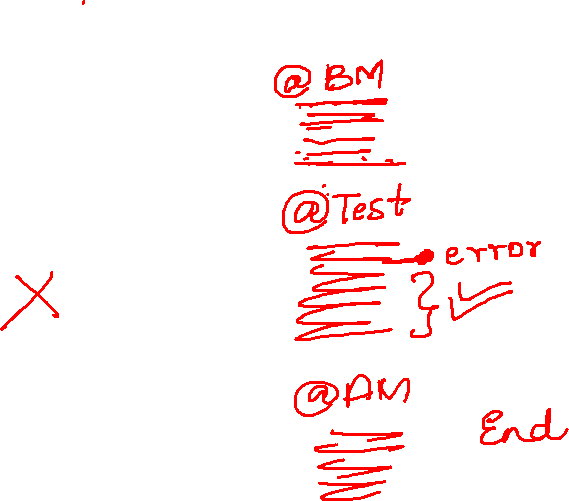 @BM
@Test
error
@AM
End